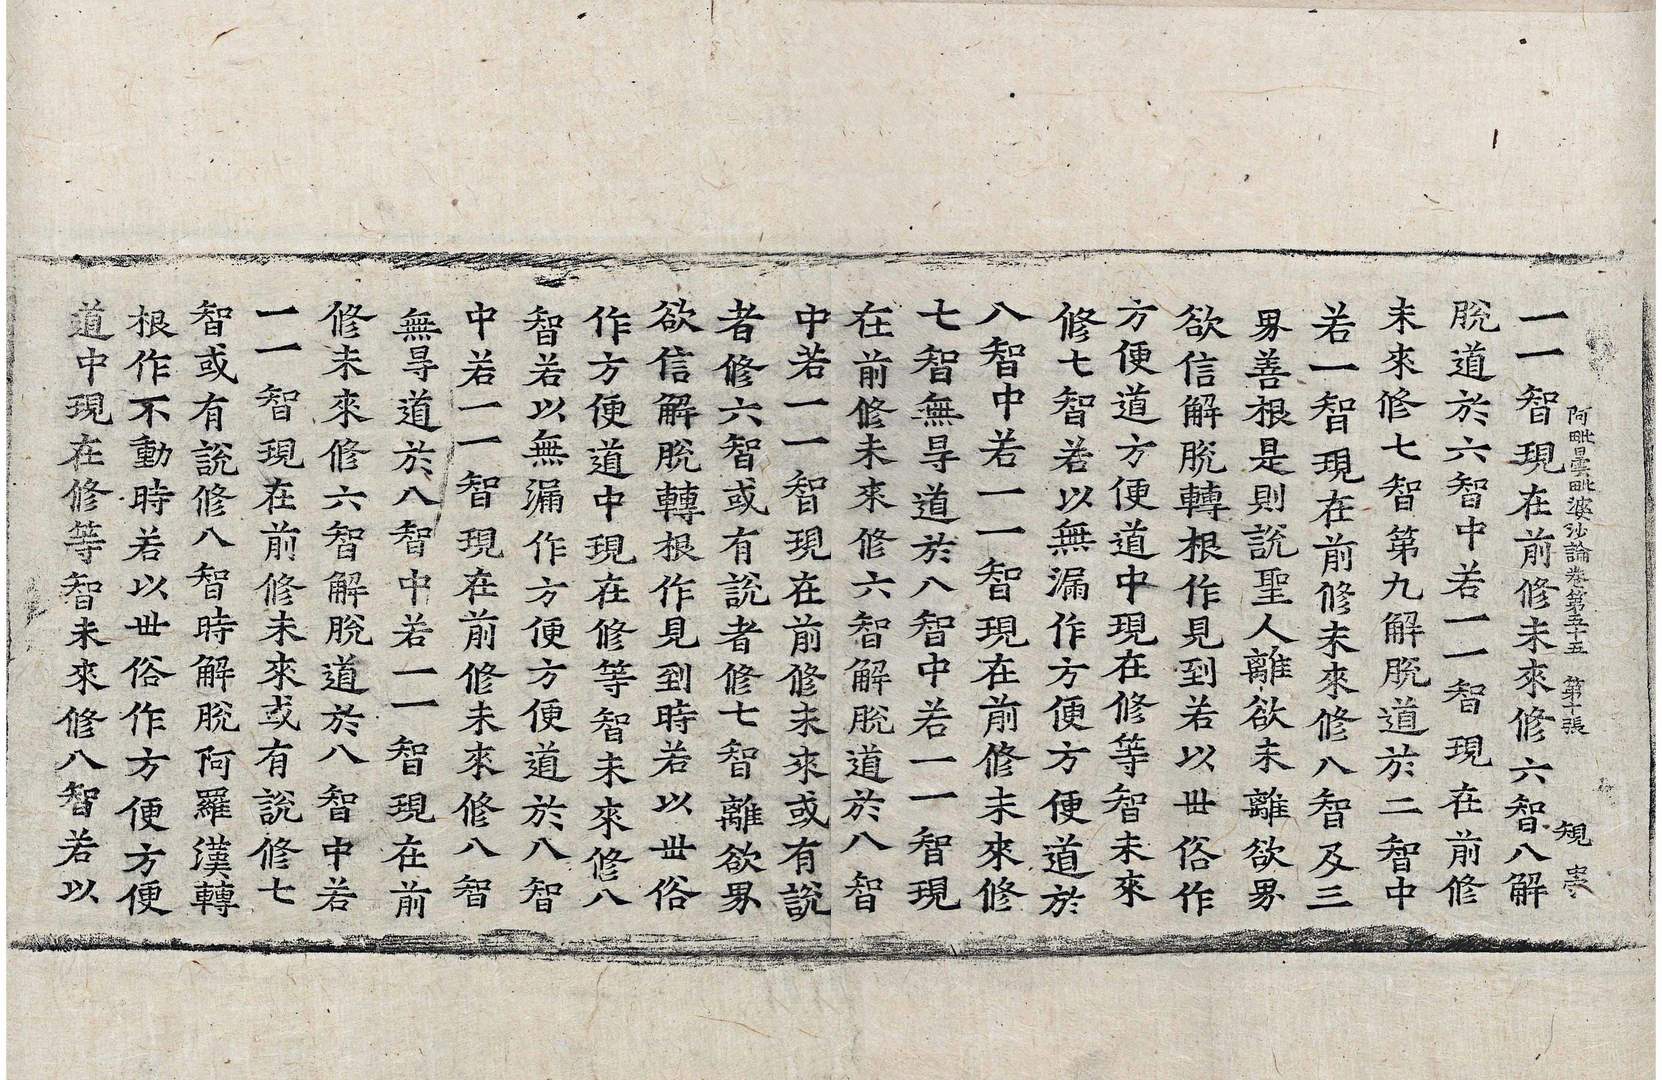 阿毗曇毗婆沙論卷第五十五 第十張 規 崇
一一智現在前修未來修六智八解
脫道於六智中若一一智現在前修
未來修七智第九解脫道於二智中
若一智現在前修未來修八智及三
界善根是則說聖人離欲未離欲界
欲信解脫轉根作見到若以世俗作
方便道方便道中現在修等智未來
修七智若以無漏作方便方便道於
八智中若一一智現在前修未來修
七智無㝵道於八智中若一一智現
在前修未來修六智解脫道於八智
中若一一智現在前修未來或有說
者修六智或有說者修七智離欲界
欲信解脫轉根作見到時若以世俗
作方便道中現在修等智未來修八
智若以無漏作方便方便道於八智
中若一一智現在前修未來修八智
無㝵道於八智中若一一智現在前
修未來修六智解脫道於八智中若
一一智現在前修未來或有說修七
智或有說修八智時解脫阿羅漢轉
根作不動時若以世俗作方便方便
道中現在修等智未來修八智若以